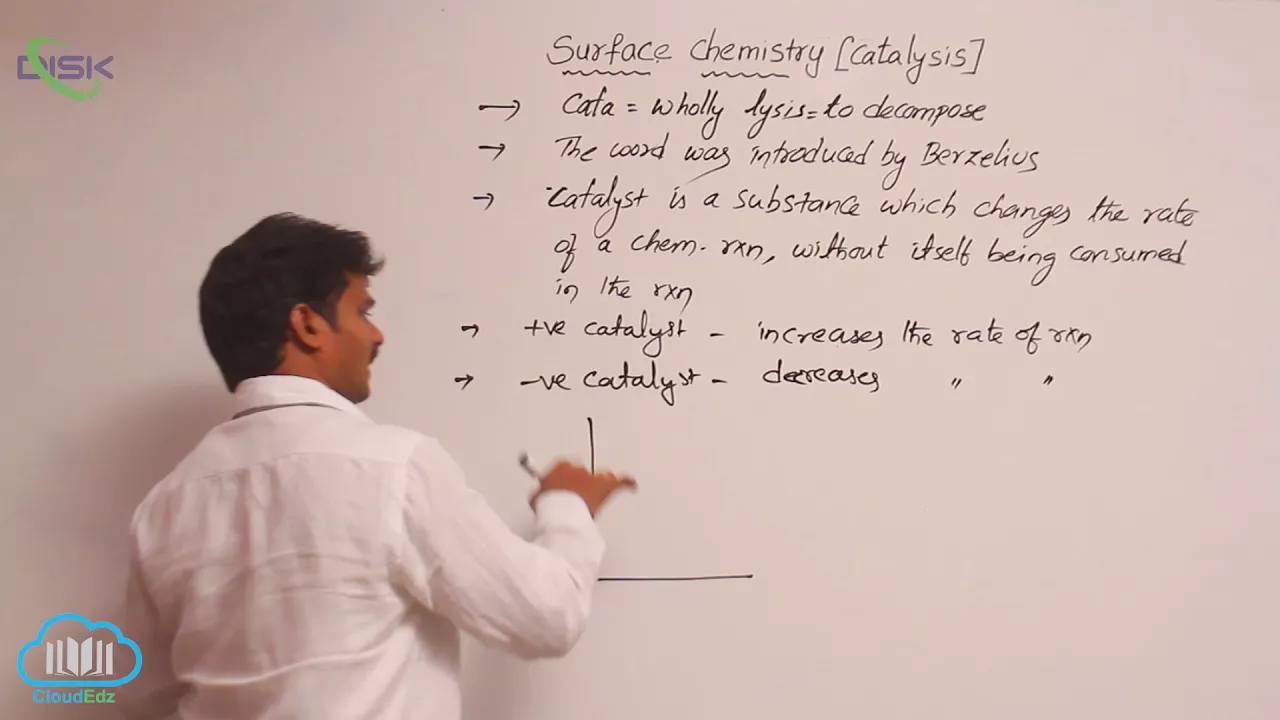 DISK
Surface Chemistry [Catalysis]
→ Cata = wholly lysis = to decompose
→ The word was introduced by Berzelius
→ Catalyst is a substance which changes the rate
of a chem. rxn, without itself being consumed
in the rxn
→ +ve catalyst - increases the rate of rxn
→ -ve catalyst - decreases " "
CloudEdz